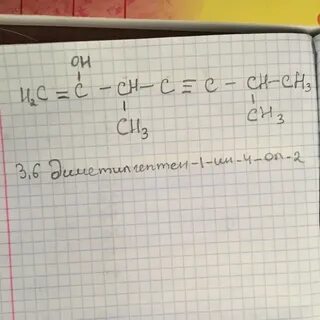 OH
H₂C = C - CH - C ≡ C - CH - CH₃
CH₃ CH₃
3,6 диметилгептен-1-ин-4-ол-2